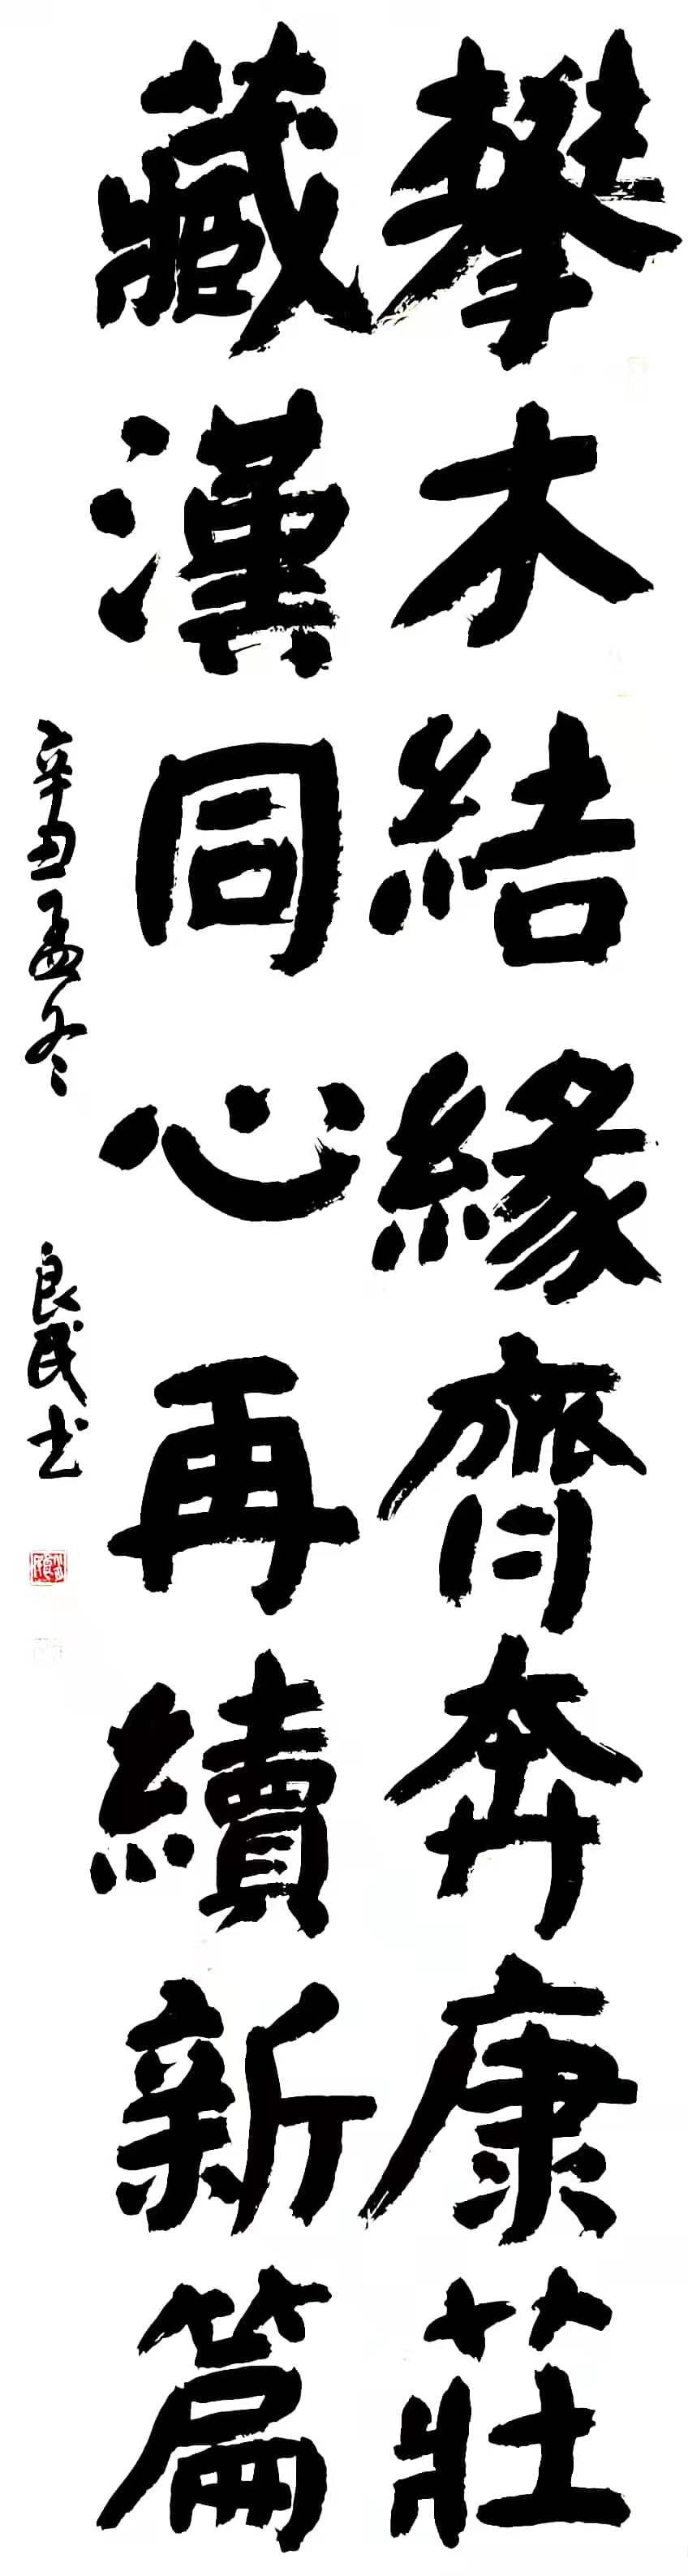 攀木結緣齊奔康莊
藏漢同心再續新篇
辛丑孟冬 良民书